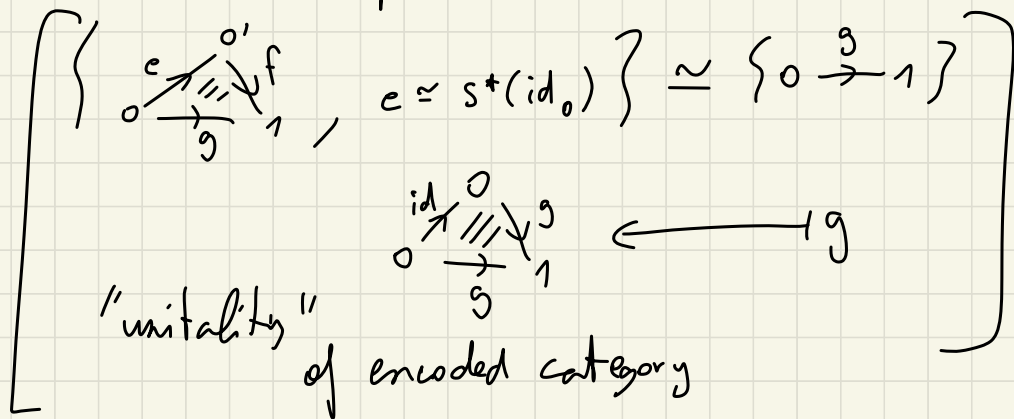 [ { 0 e 0' f 1 g , e ≃ s*(id₀) } ≃ { 0 g→ 1 }
id 0 g 0 g 1 ⟵| g
"unitality"
of encoded category ]